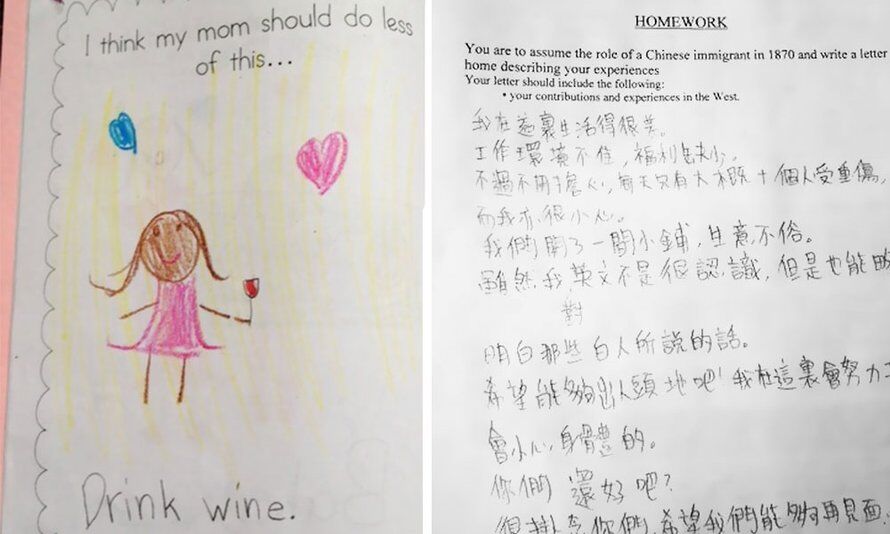 I think my mom should do less
of this...
Drink wine.
HOMEWORK
You are to assume the role of a Chinese immigrant in 1870 and write a letter
home describing your experiences
Your letter should include the following:
• your contributions and experiences in the West.
我在這裏生活得很美。
工作環境不佳,福利缺少。
不過不用擔心,每天只有大概十個人受重傷,
而我亦很小心。
我們開了一間小鋪,生意不俗。
雖然我英文不是很認識,但是也能夠
對
明白那些白人所說的話。
希望能夠出人頭地吧!我在這裏會努力工
會小心身體的。
你們還好吧?
很掛念你們,希望我們能夠再見面。